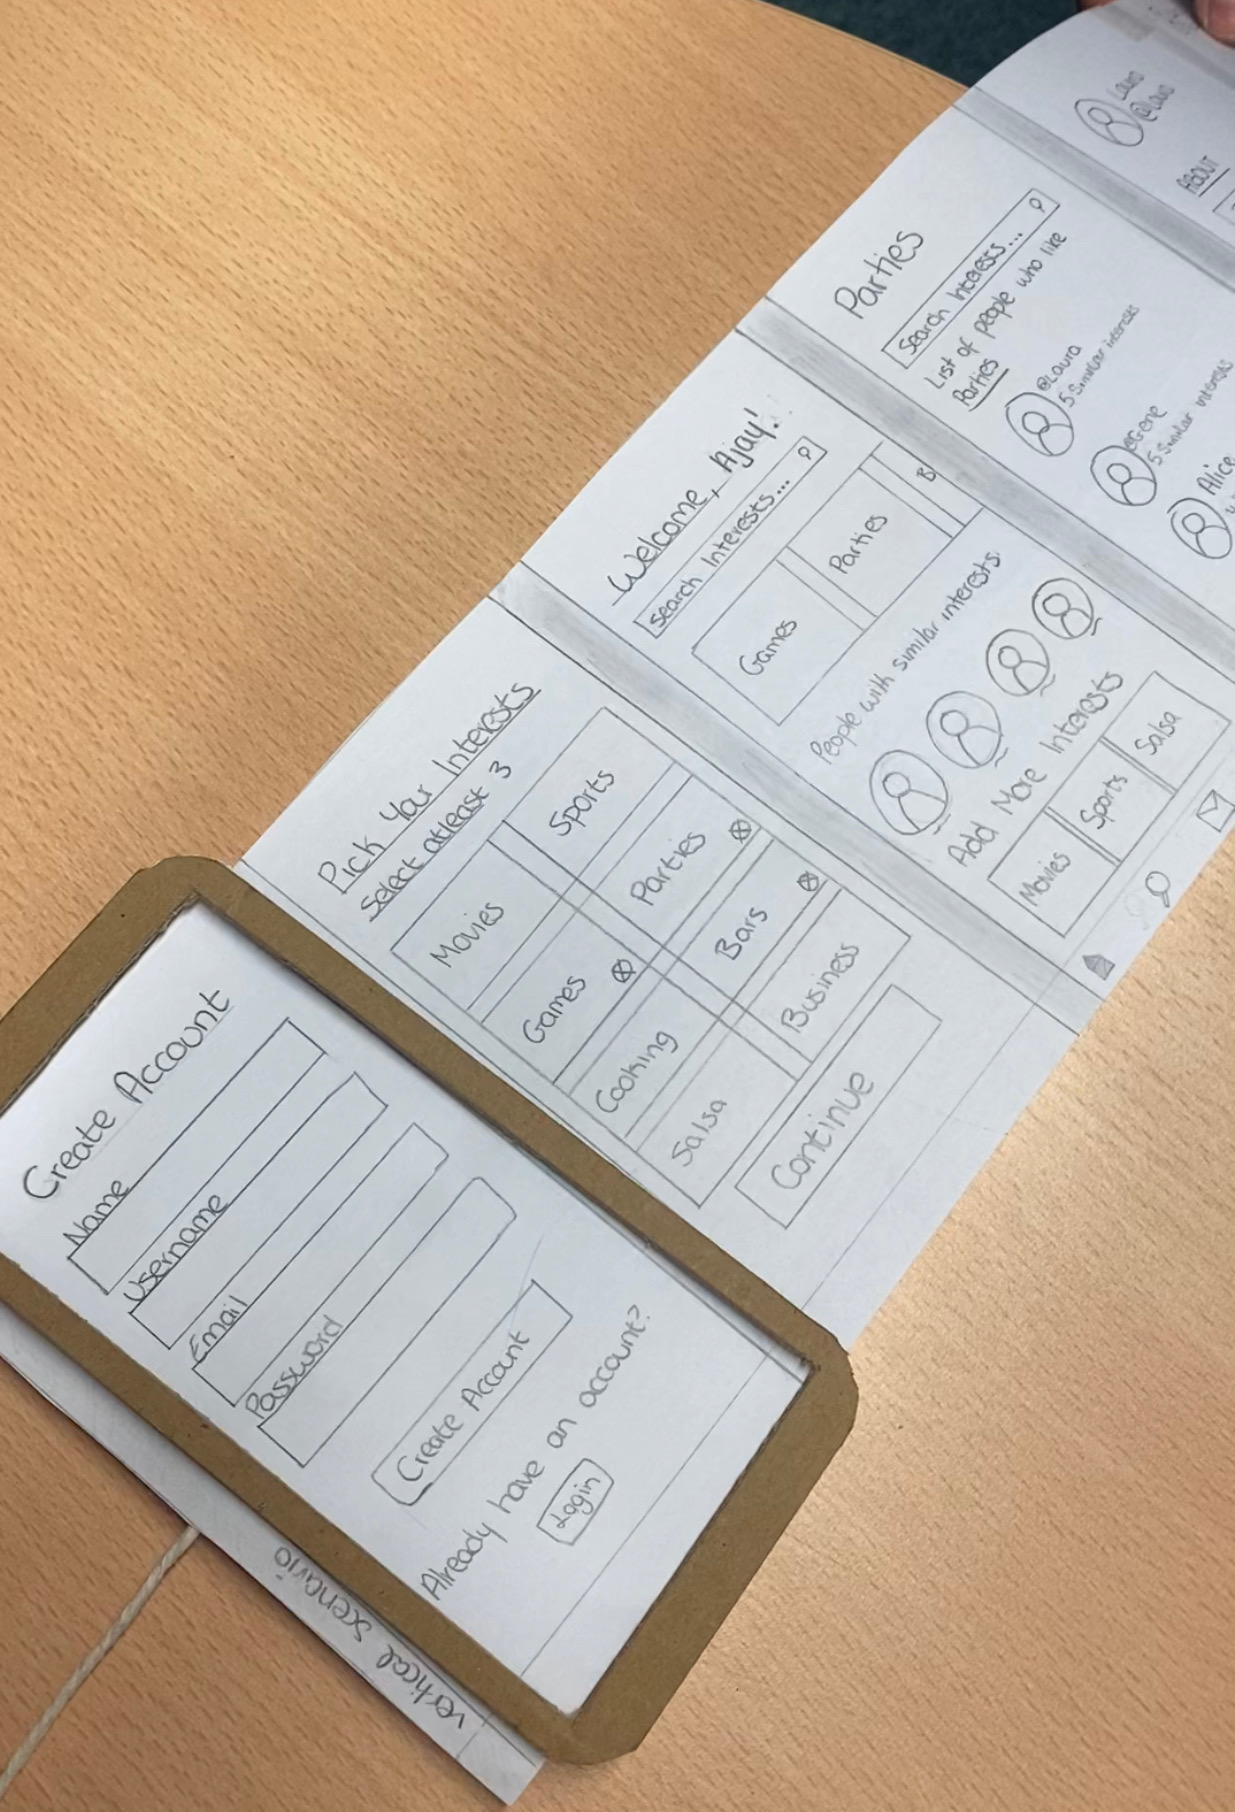 Create Account
Name
Username
Email
Password
Create Account
Already have an account?
Login
vertical scenario
Pick Your Interests
Select atleast 3
Movies
Sports
Games
Parties
Cooking
Bars
Salsa
Business
Continue
Welcome, Ajay!
Search Interests...
Games
Parties
B
People with similar interests:
Add More Interests
Movies
Sports
Salsa
Parties
Search Interests...
List of people who like
Parties
@Laura
5 Similar interests
@Gene
5 Similar interests
Alice
ABOUT